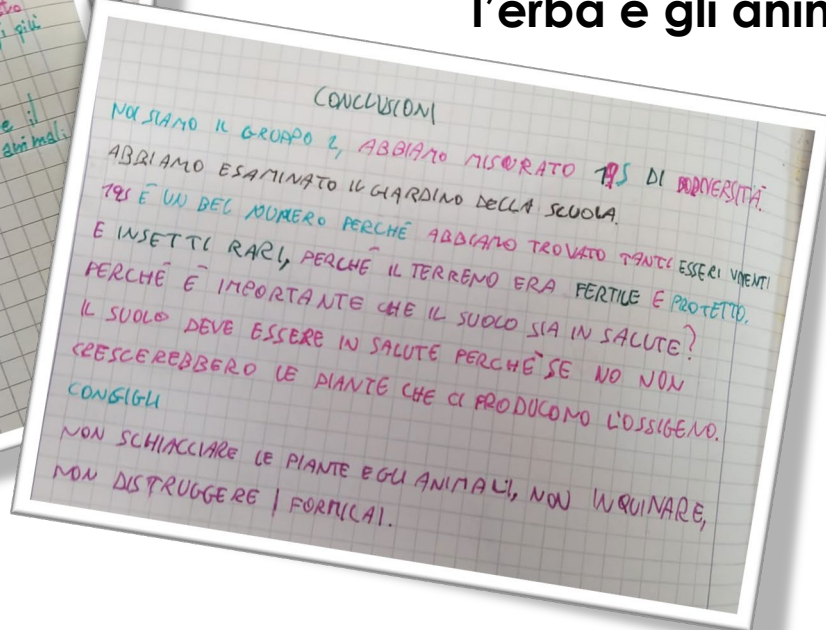 l'erba e gli anim
più
e il
animali
CONCLUSIONI
NOI SIAMO IL GRUPPO 2, ABBIAMO MISURATO 195 DI BIODIVERSITÀ.
ABBIAMO ESAMINATO IL GIARDINO DELLA SCUOLA.
195 È UN BEL NUMERO PERCHÉ ABBIAMO TROVATO TANTI ESSERI VIVENTI
E INSETTI RARI, PERCHÉ IL TERRENO ERA FERTILE E PROTETTO.
PERCHÉ È IMPORTANTE CHE IL SUOLO SIA IN SALUTE?
IL SUOLO DEVE ESSERE IN SALUTE PERCHÉ SE NO NON
CRESCEREBBERO LE PIANTE CHE CI PRODUCONO L'OSSIGENO.
CONSIGLI
NON SCHIACCIARE LE PIANTE E GLI ANIMALI, NON INQUINARE,
NON DISTRUGGERE I FORMICAI.